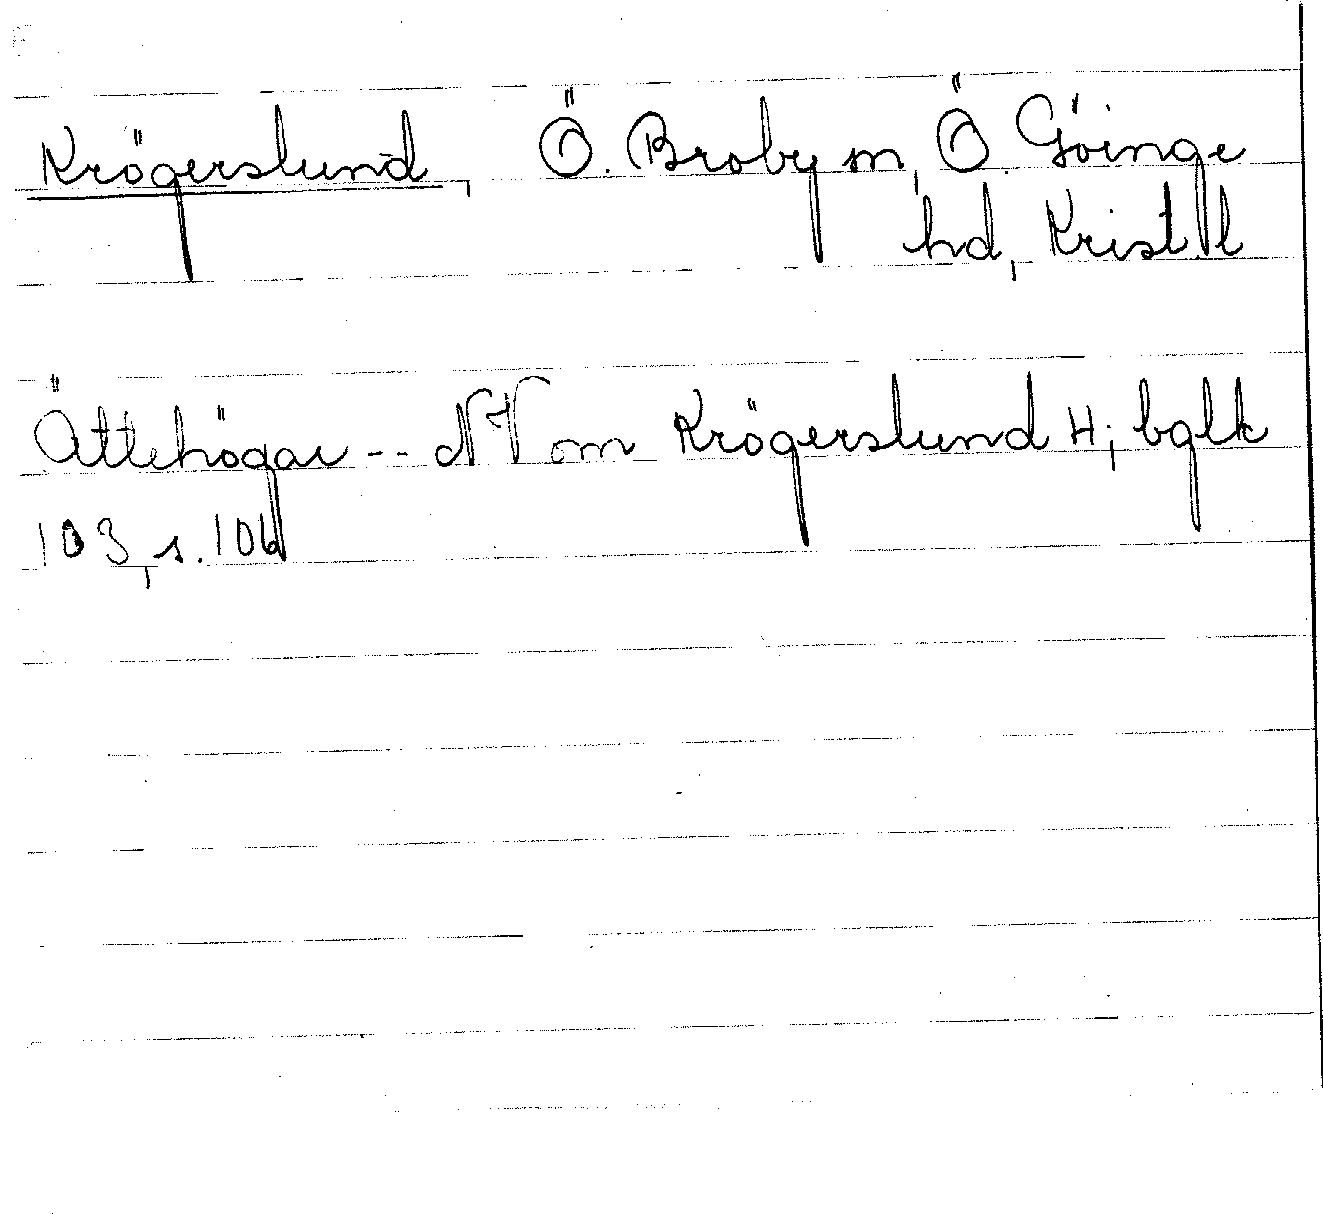 Krögerslund, Ö. Broby sn, Ö. Göinge
hd, Krist. l
Ättehögar -- NV om Krögerslund H; bglk
103, s. 106